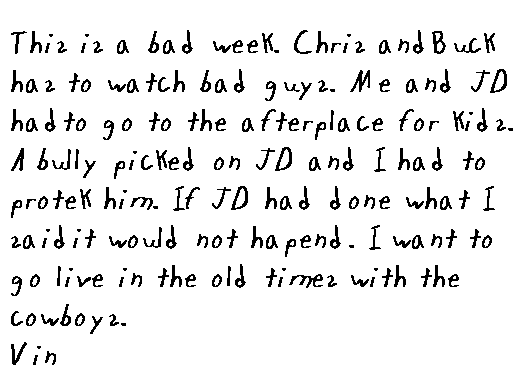 This is a bad week. Chris and Buck
has to watch bad guys. Me and JD
had to go to the afterplace for kids.
A bully picked on JD and I had to
protek him. If JD had done what I
said it would not hapend. I want to
go live in the old times with the
cowboys.
Vin